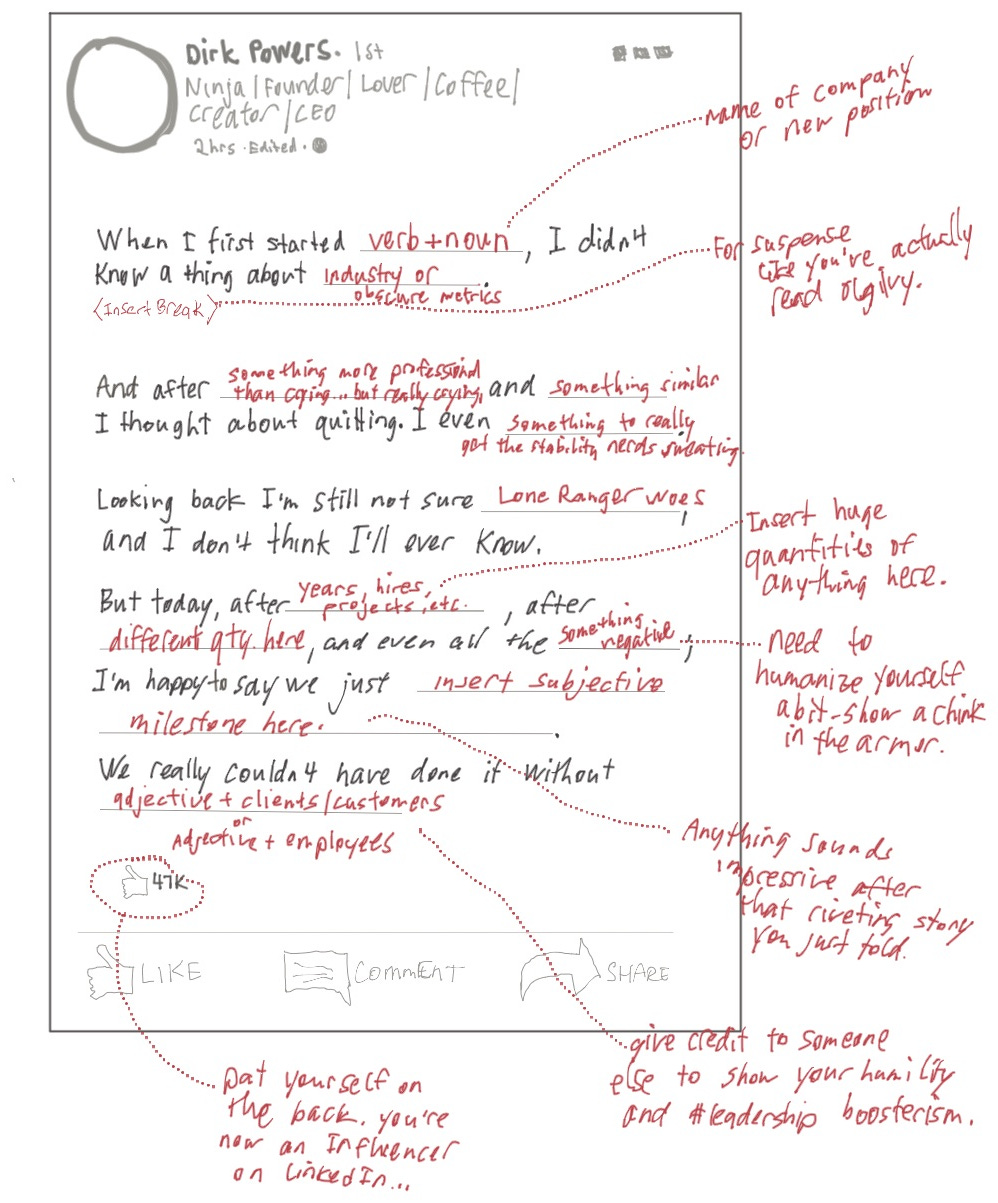 Dirk Powers. 1st
Ninja | Founder | Lover | Coffee |
Creator | CEO
2hrs · Edited ·
name of company
or new position
When I first started verb + noun, I didn't
know a thing about industry or
obscure metrics.
<Insert Break>
For suspense
like you've actually
read olgilvy.
something more professional
And after than crying... but really crying, and something similar
I thought about quitting. I even something to really
get the stability nerds sweating.
Looking back I'm still not sure Lone Ranger woes,
and I don't think I'll ever know.
Insert huge
quantities of
anything here.
But today, after years, hires,
projects, etc., after
different qty. here, and even all the something
negative;
need to
humanize yourself
a bit-show a chink
in the armor.
I'm happy to say we just insert subjective
milestone here.
We really couldn't have done it without
adjective + clients/customers
or
Adjective + employees
Anything sounds
impressive after
that riveting story
you just told.
47K
LIKE
COMMENT
SHARE
give credit to someone
else to show your humility
and #leadership boosterism.
pat yourself on
the back. you're
now an Influencer
on LinkedIn...